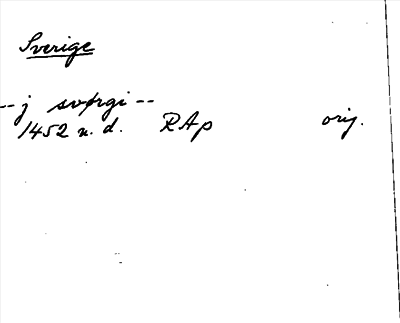 Sverige
-- j swærgi --
1452 u. d. RAp orig.